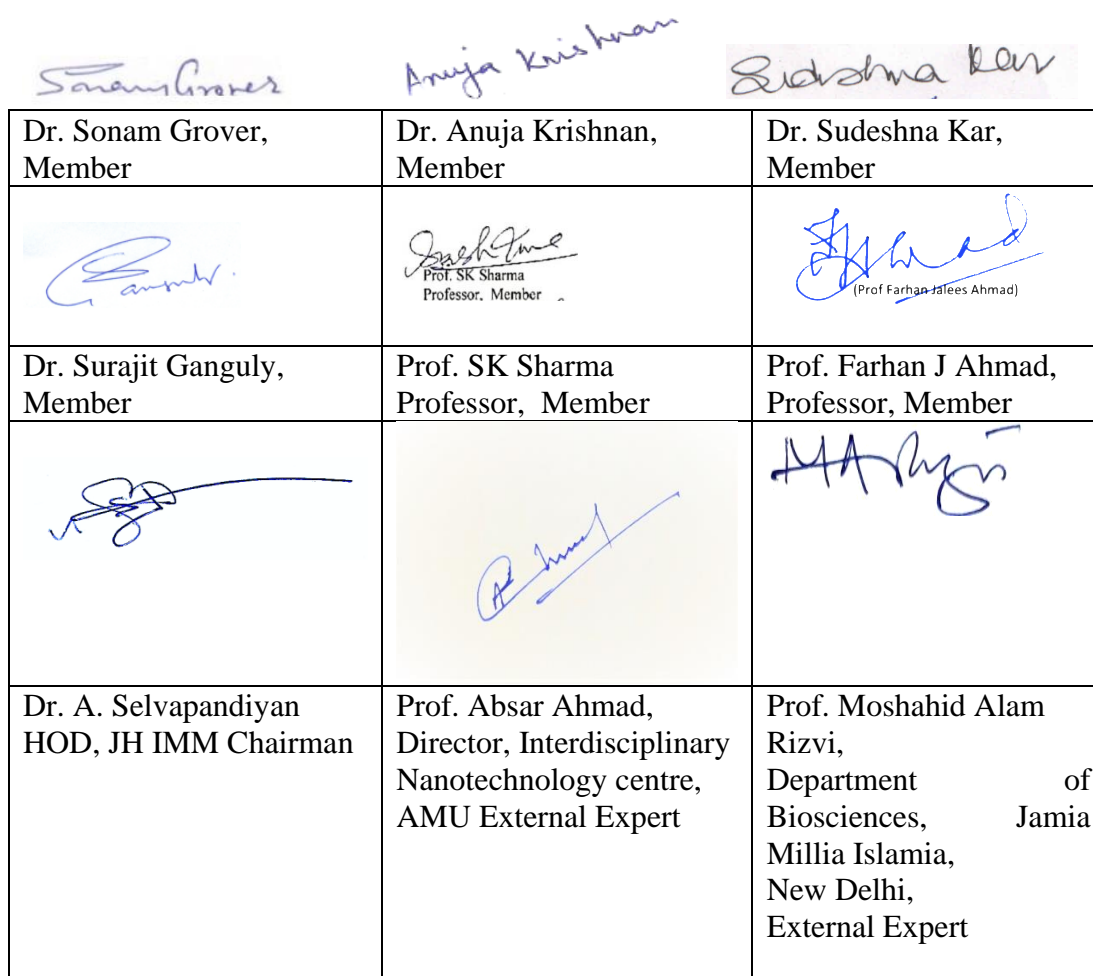 Sonam Grover
Anuja Krishnan
Sudeshna Kar
Dr. Sonam Grover,
Member
Dr. Anuja Krishnan,
Member
Dr. Sudeshna Kar,
Member
Prof. SK Sharma
Professor, Member
(Prof Farhan Jalees Ahmad)
Dr. Surajit Ganguly,
Member
Prof. SK Sharma
Professor, Member
Prof. Farhan J Ahmad,
Professor, Member
Dr. A. Selvapandiyan
HOD, JH IMM Chairman
Prof. Absar Ahmad,
Director, Interdisciplinary
Nanotechnology centre,
AMU External Expert
Prof. Moshahid Alam
Rizvi,
Department of
Biosciences, Jamia
Millia Islamia,
New Delhi,
External Expert